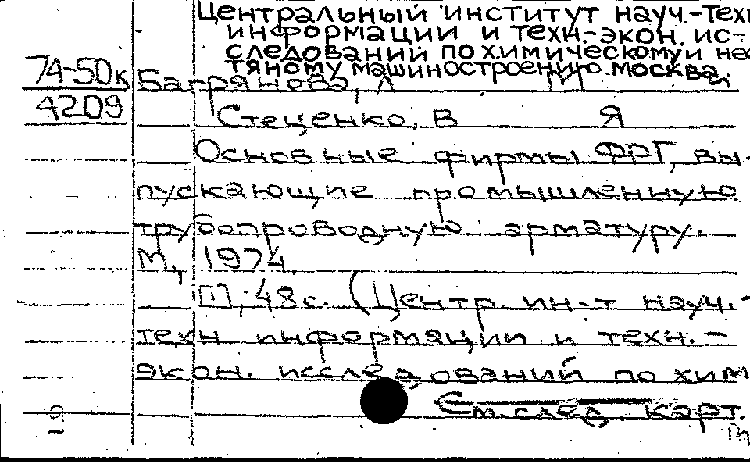 Центральный институт науч.-техн
информации и техн-экон. ис-
следований по химическому и неф
тяному машиностроению. Москва.
74-50к
4209
Багрянова, Л
Стеценко, В Я
Основные фирмы ФРГ, вы-
пускающие промышленную
трубопроводную арматуру.
М, 1974.
48с. (Центр. ин-т науч.-
техн информации и техн.-
экон. исследований по хим
См. след. карт.